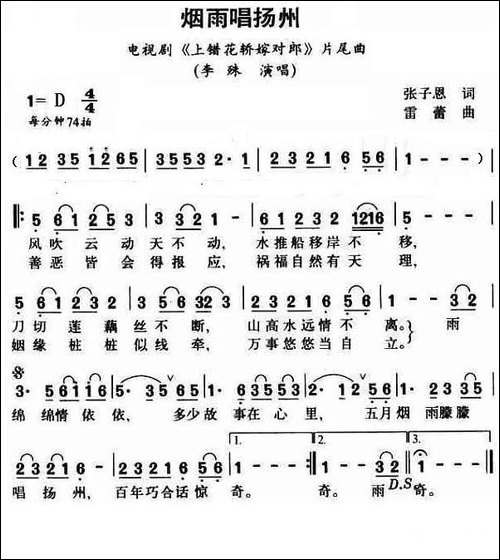 烟雨唱扬州
电视剧《上错花轿嫁对郎》片尾曲
(李殊 演唱)
1= D 4/4
每分钟74拍
张子恩 词
雷蕾 曲
( 1 2 3 5 1 2 6 5 | 3 5 3 5 2 · 1 | 2 3 2 1 6 5 6 | 1 - - - )
5 6 1 2 5 3 | 2 3 2 1 2 - | 6 1 2 3 2 1216 | 5 - - -
风吹云动天不动, 水推船移岸不移,
善恶皆会得报应, 祸福自然有天理,
5 6 1 2 3 5 6 5 32 3 | 2 3 2 1 6 5 6 | 1 - - 3 2
刀切莲藕丝不断, 山高水远情不离。 雨
姻缘桩桩似线牵, 万事悠悠当自立。
3 · 5 6 1 6 5 | 5 · 3 5 6 5 | 1 6 5 3 2 3 | 1 · 2 3 5 3 5
绵绵情依依, 多少故事在心里, 五月烟雨朦朦
1. 2. 3.
2 3 2 1 6 - | 2 2 3 2 1 6 5 6 | 1 - - - | 1 - - 3 2 | 1 - - -
D.S.
唱扬州, 百年巧合话惊奇。 奇。 雨奇。